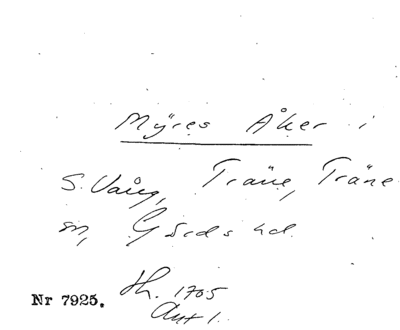 Myres Åker i
S. Vång, Träne, Träne
sn, Gärds hd.
Nr 7925. Lh. 1705
Akt 1.